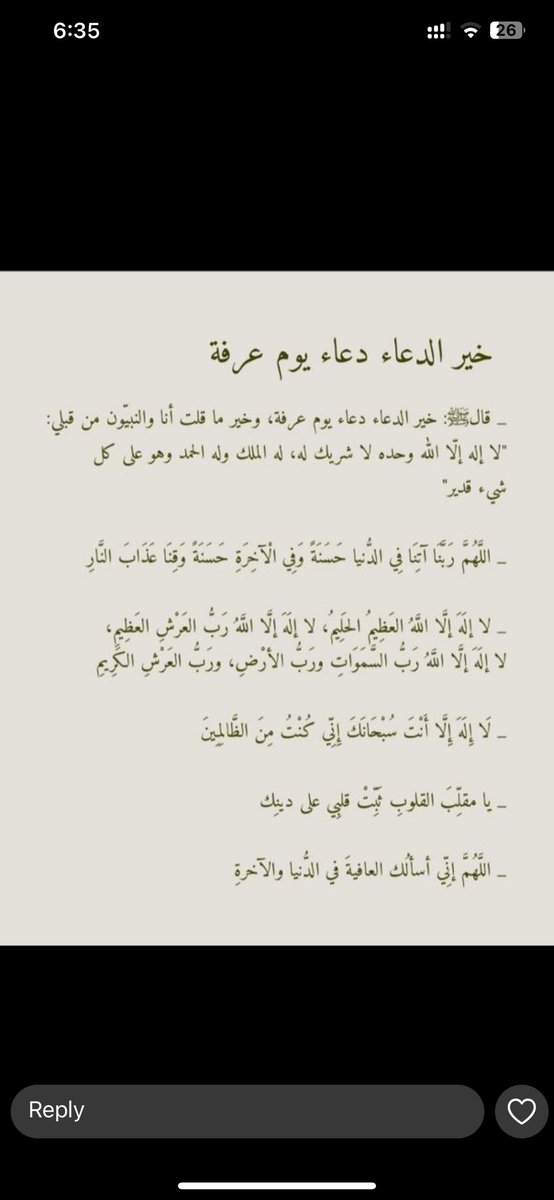 6:35
26
خير الدعاء دعاء يوم عرفة
_ قالﷺ: خير الدعاء دعاء يوم عرفة، وخير ما قلت أنا والنبيّون من قبلي:
"لا إله إلّا الله وحده لا شريك له، له الملك وله الحمد وهو على كل
شيء قدير"
_ اللَّهُمَّ رَبَّنَا آتِنَا فِي الدُّنيا حَسَنَةً وَفِي الْآخِرَةِ حَسَنَةً وَقِنَا عَذَابَ النَّارِ
_ لا إلَهَ إلَّا اللَّهُ العَظِيمُ الحَلِيمُ، لا إلَهَ إلَّا اللَّهُ رَبُّ العَرْشِ العَظِيمِ،
لا إلَهَ إلَّا اللَّهُ رَبُّ السَّمَوَاتِ ورَبُّ الأرْضِ، ورَبُّ العَرْشِ الكَرِيمِ
_ لَا إِلَهَ إِلَّا أَنْتَ سُبْحَانَكَ إِنِّي كُنْتُ مِنَ الظَّالِمِينَ
_ يا مقلِّبَ القلوبِ ثَبِّتْ قلبِي على دينِك
_ اللَّهُمَّ إنِّي أسألُك العافيةَ في الدُّنيا والآخرةِ
Reply